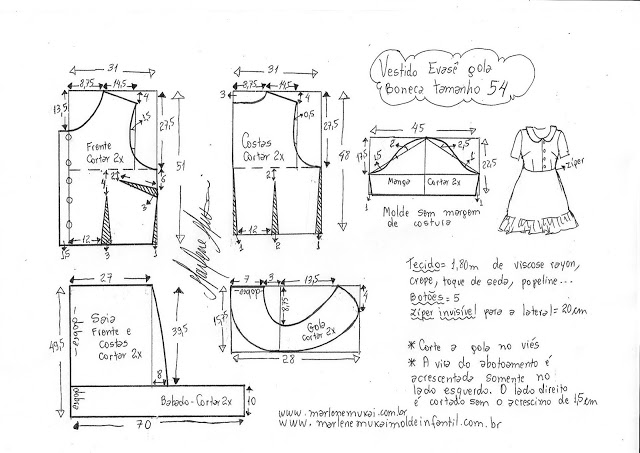 Vestido Evasê gola
Boneca tamanho 54
31
8,75
14,5
4
13,5
1,5
27,5
Frente
Cortar 2x
51
2
4
6
3
12
1,5
3
1
31
8,75
14,5
3
4
0,5
27,5
Costas
Cortar 2x
48
2
12
1
2
1
45
2
2,5
1,5
1
17,5
22,5
Manga
Cortar 2x
1
1
Molde sem margem
de costura
zíper
Marlene Mukai
27
Saia
Frente e
Costas
Cortar 2x
-dobra-
49,5
39,5
8
dobra
Babado - Cortar 2x
10
70
7
3
13,5
-dobra-
8,75
4
15,5
Gola
cortar 2x
28
Tecido= 1,80m de viscose rayon,
crepe, toque de seda, popeline...
Botões = 5
Zíper invisível para a lateral = 20cm
* Corte a gola no viés
* A vira do abotoamento é
acrescentada somente no
lado esquerdo. O lado direito
é cortado sem o acrescimo de 1,5cm
www.marlenemukai.com.br
www.marlenemukaimoldeinfantil.com.br